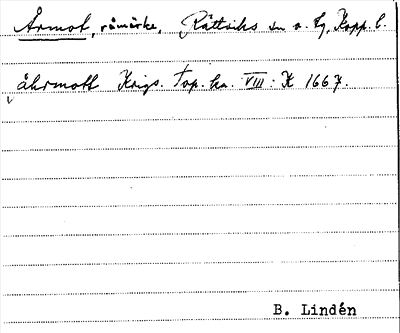 Årmot, råmärke, Rättviks sn o. tg, Kopp. l.
åhrmott Krigs. Top. ka. VIII: K 1667.
B. Lindén